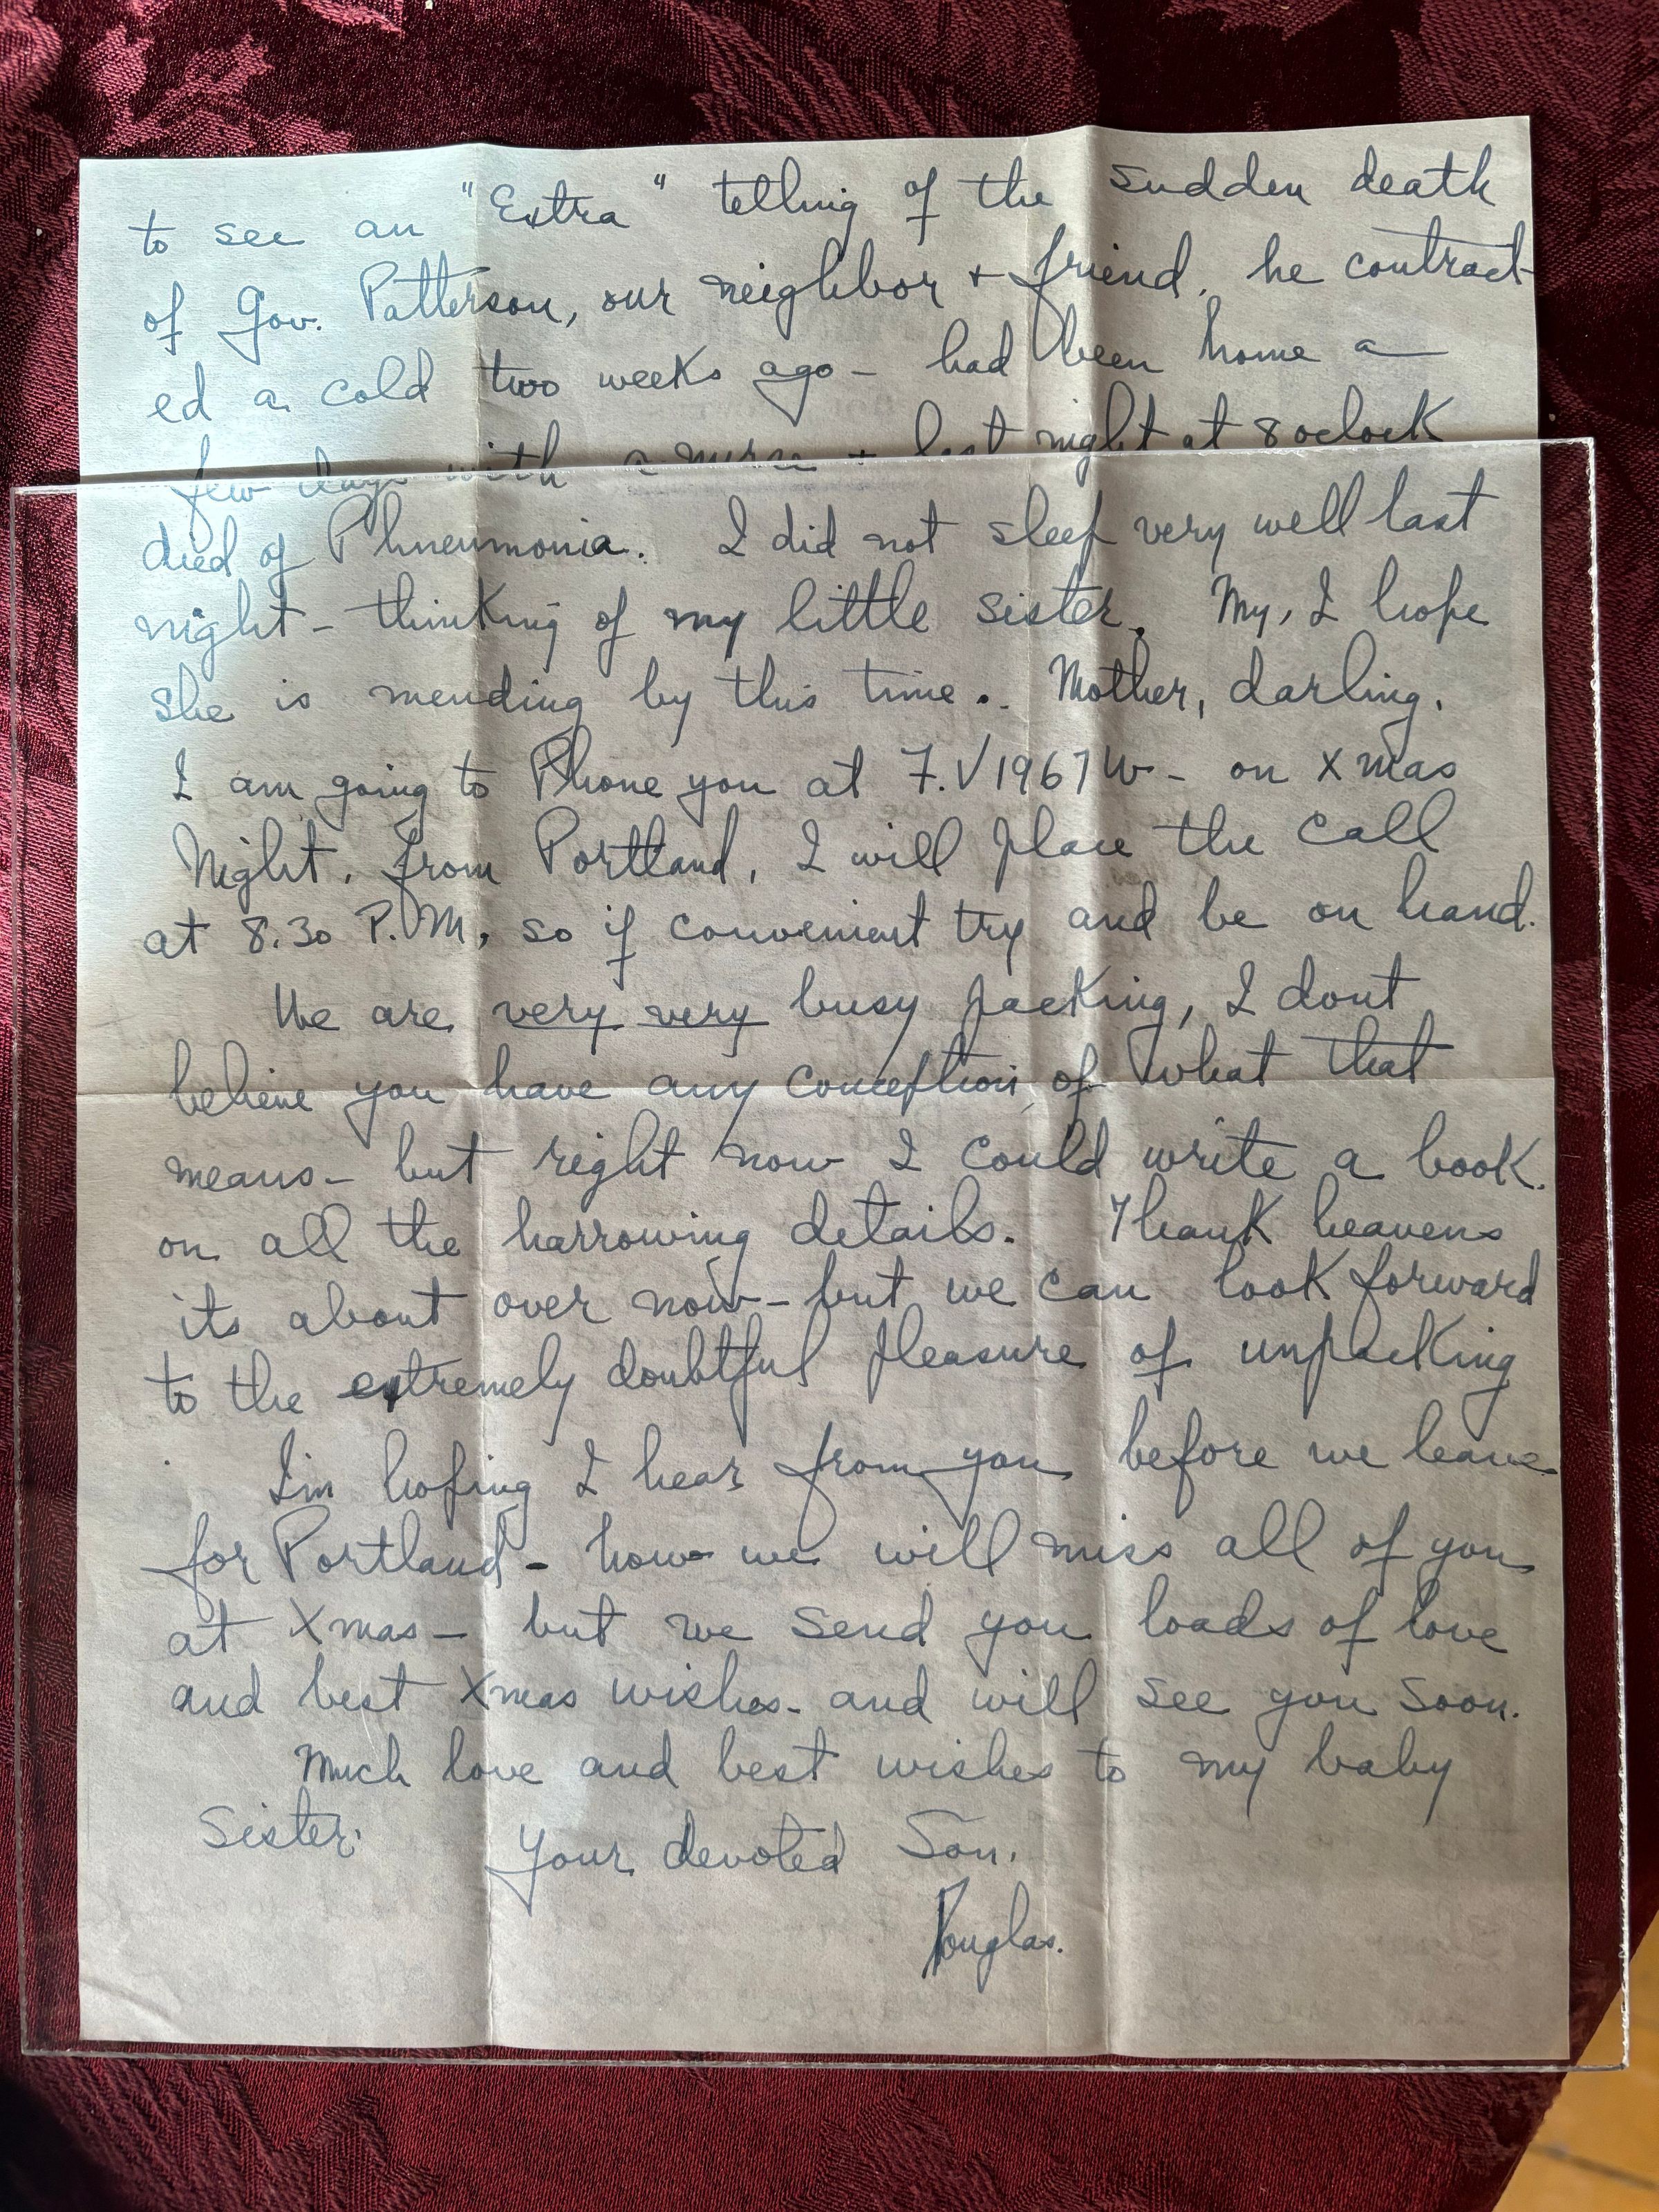 to see an "Extra" telling of the sudden death
of Gov. Patterson, our neighbor + friend. he contract-
ed a cold two weeks ago - had been home a
few days with a nurse + last night at 8 oclock
died of Phneumonia. I did not sleep very well last
night - thinking of my little sister. My, I hope
she is mending by this time.. Mother, darling.
I am going to Phone you at 7.V1967W - on Xmas
Night. from Portland, I will place the call
at 8.30 P.M, so if convenient try and be on hand.
We are very very busy packing, I dont
believe you have any conception of what that
means - but right now I could write a book.
on all the harrowing details. Thank heavens
its about over now - but we can look forward
to the extremely doubtful pleasure of unpacking
I'm hoping I hear from you before we leave
for Portland - how we will miss all of you
at Xmas - but we send you loads of love
and best Xmas wishes - and will see you soon.
Much love and best wishes to my baby
Sister.
Your devoted Son.
Douglas.